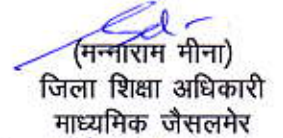 (मन्नाराम मीना)
जिला शिक्षा अधिकारी
माध्यमिक जैसलमेर